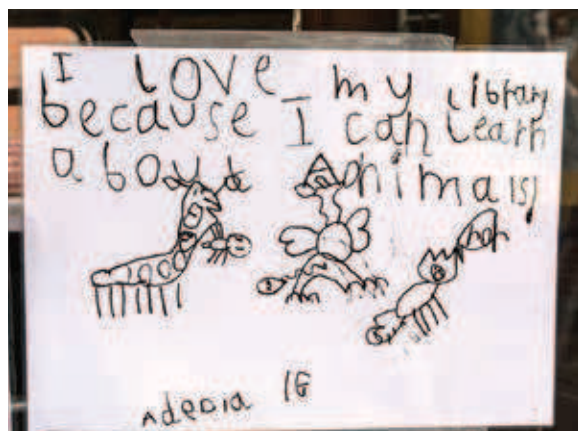 I LOVE my Library
because I can learn
about animals
nom
Adecia 1G